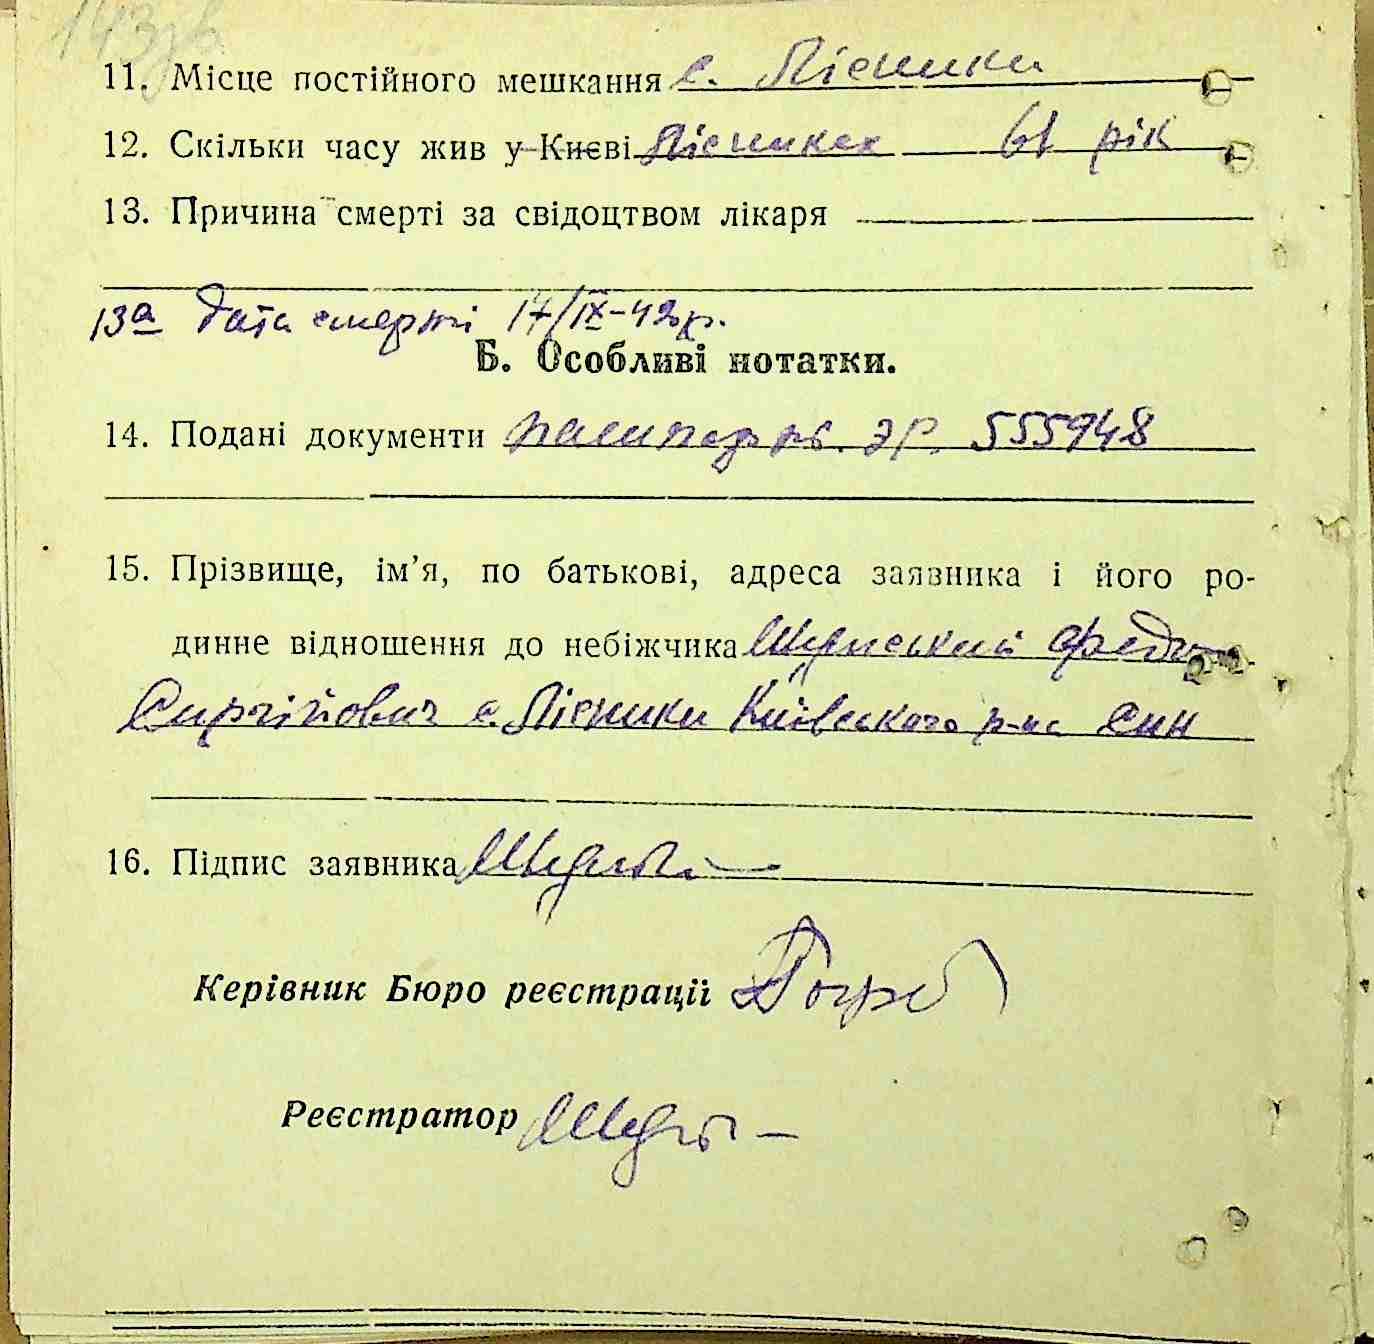 143зв
11. Місце постійного мешкання с. Лісники
12. Скільки часу жив у Києві Лісниках 61 рік
13. Причина смерті за свідоцтвом лікаря
13а Дата смерті 17/IX-42р.
Б. Особливі нотатки.
14. Подані документи пашпорт. ЭР. 555948
15. Прізвище, ім’я, по батькові, адреса заявника і його ро-
динне відношення до небіжчика
с. Лісники Київського р-на син
16. Підпис заявника
Керівник Бюро реєстрації
Реєстратор